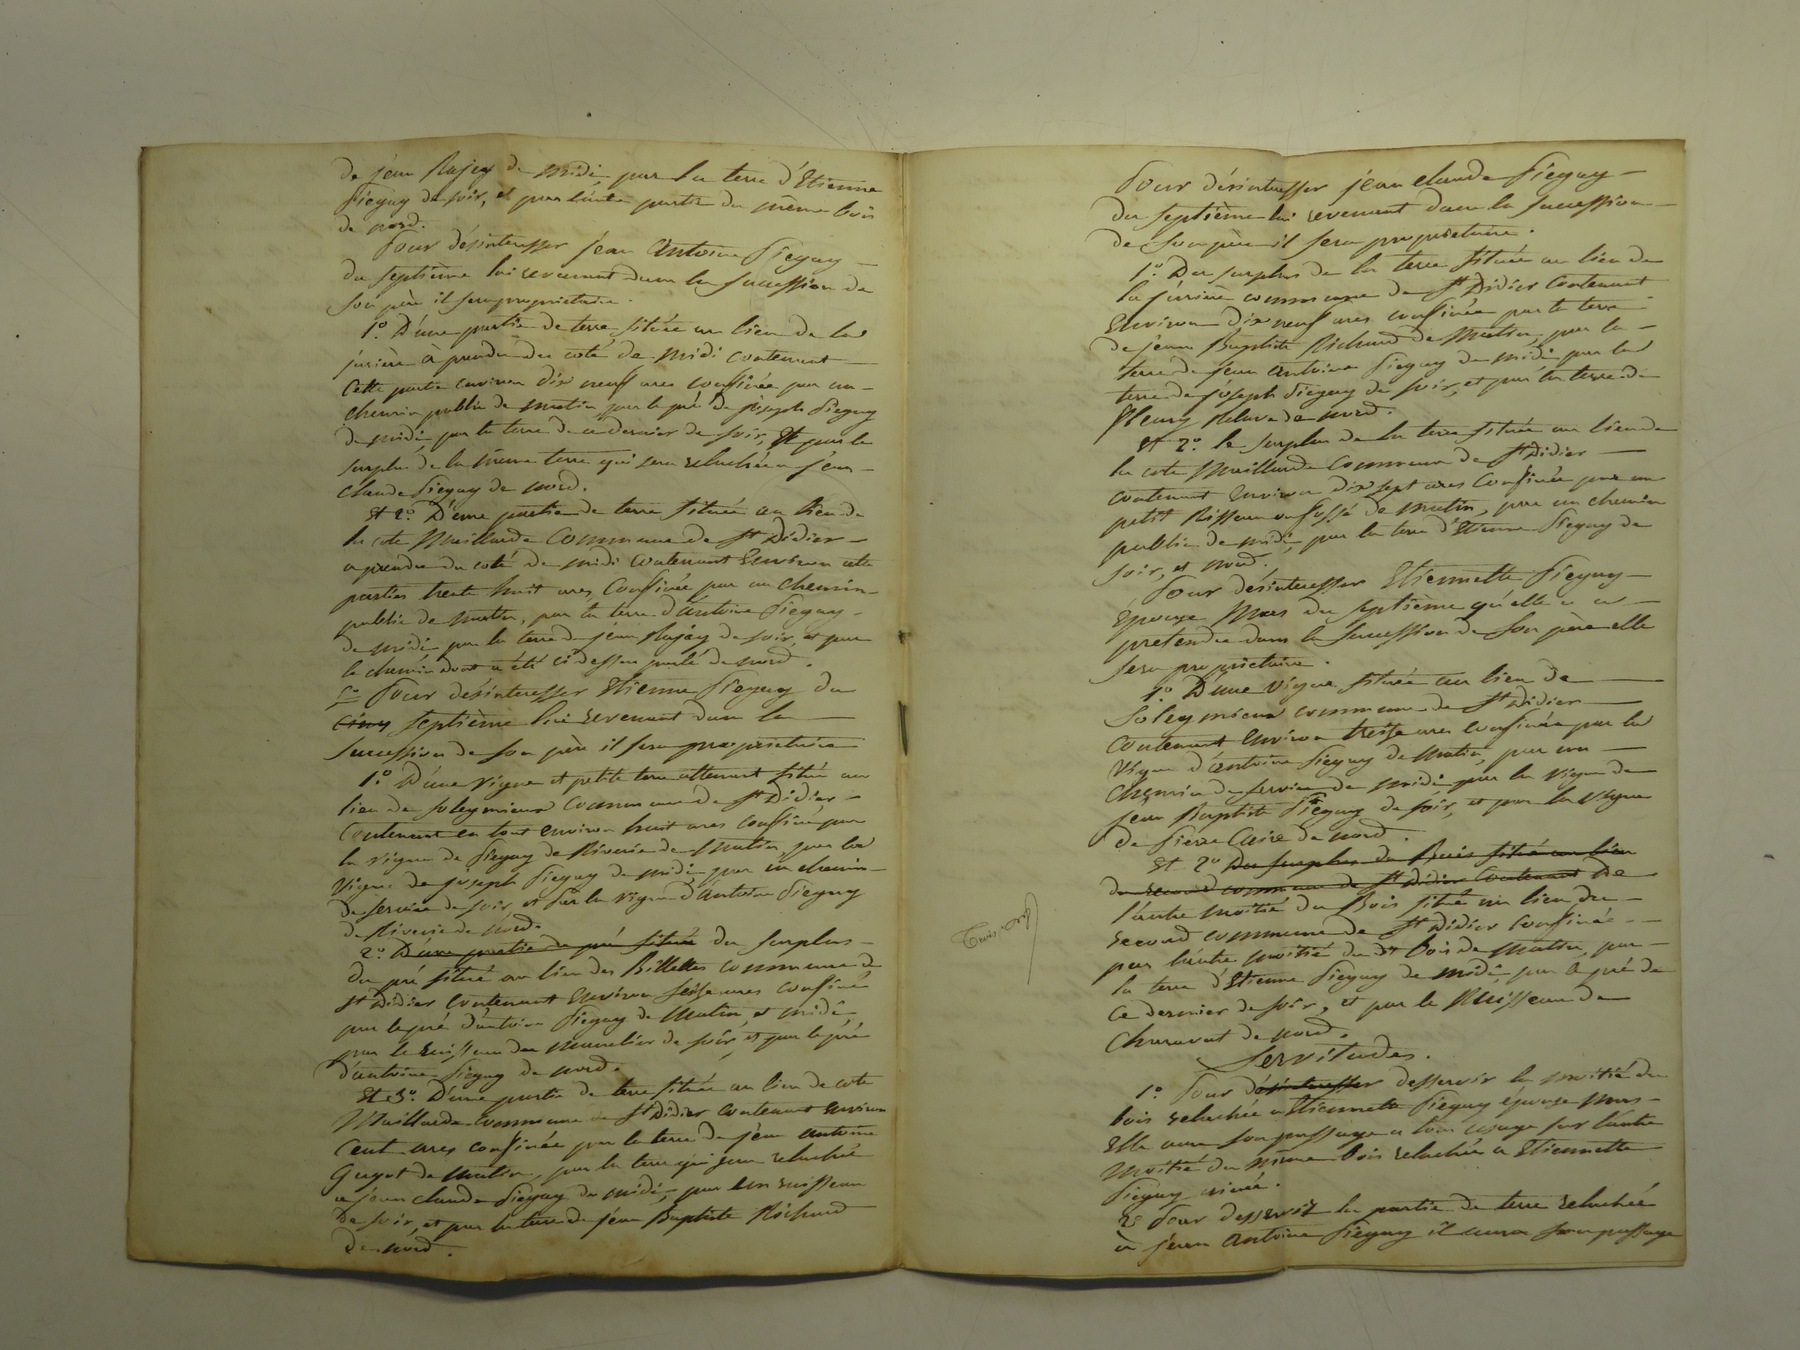 de jean Rajay de midi par la terre d'Etienne
Piegay de soir, et par l'autre partie du même bois
de nord.
Pour désinteresser jean Antoine Piegay
du septième lui revenant dans la succession de
son père il sera propriétaire.
1º. D'une partie de terre située au lieu de la
à prendre du coté de midi contenant
cette partie environ dix neuf ares confinée par un
chemin public de matin par le pré de joseph Piegay
de midi, par la terre de ce dernier de soir, et par le
surplus de la même terre qui sera relachée a jean
claude Piegay de nord.
Et 2º. D'une partie de terre située au lieu de
la cote Maillarde Commune de St Didier
a prendre du coté de midi contenant Environ cette
parties trente huit ares Confinée par un chemin
public de matin, par la terre d'antoine Piegay
de midi par la terre de jean Rajay de soir, et par
le chemin dont a été ci dessus parlé de nord.
Pour désinteresser Etienne Piegay du
cinq septième lui revenant dans la
succession de son père il sera propriétaire
1º. D'une vigne et petite terre attenant située au
lieu de soleymieux Commune de St Didier
Contenant en tout environ huit ares confinée par
la vigne de Piegay de Riverie de Matin, par la
Vigne de joseph Piegay de midi, par un chemin
de service de soir, et par la vigne d'antoine Piegay
de Riverie de nord.
2º. D'une partie de pré située du surplus
du pré situé au lieu des Billettes commune de
St Didier contenant Environ seize ares confiné
par le pré d'antoine Piegay de Matin, et midi,
par le ruisseau du de soir, et par le pré
d'antoine Piegay de nord.
Et 3º. D'une partie de terre située au lieu de cote
Maillarde Commune de St Didier contenant Environ
Cent ares confinée par la terre de jean antoine
Guyot de Matin, par la terre qui sera relachée
a jean claude Piegay de midi, par un ruisseau
de soir, et par la terre de jean Baptiste Richard
de nord.
Pour désinteresser jean claude Piegay
du septième lui revenant dans la succession
de son père il sera propriétaire.
1º. Du surplus de la terre située au lieu de
la commune de St Didier Contenant
Environ dix neuf ares confinée par la terre
de jean Baptiste Richard de Matin, par la
terre de jean antoine Piegay de midi par la
terre de joseph Piegay de soir, et par la terre de
Fleury de nord.
Et 2º. le surplus de la terre située au lieu de
la cote Maillarde Commune de St Didier
contenant Environ dix sept ares Confinée par un
petit Risseau ou fossé de matin, par un chemin
public de midi, par la terre d'Etienne Piegay de
soir, et nord.
Pour désinteresser Etiennette Piegay
Epouse Mas du septième qu'elle a a
pretendre dans la succession de son père elle
sera propriétaire.
1º. D'une vigne située au lieu de
Soleymieux commune de St Didier
Contenant Environ treize ares confinée par la
Vigne d'antoine Piegay de Matin, par un
Chemin de service de midi par la vigne de
jean Baptiste Piegay de soir, et par la vigne
de Pierre Claire de nord.
Et 2º Du surplus du Bois situé au lieu
du second commune de St Didier Contenant De
l'autre moitié du Bois situé au lieu du
second commune de St Didier confinée
par l'autre moitié du dt bois de Matin, par
la terre d'Etienne Piegay de midi, par le pré de
ce dernier de soir, et par le Ruisseau de
Charavat de nord.
Servitudes.
1º. Pour désinteresser desservir la moitié du
bois relachée a Etiennette Piegay épouse Mas
Elle aura son passage a tous usage sur l'autre
Moitié du même bois relachée a Etiennette
Piegay ainée.
2º Pour desservir la partie de terre relachée
à jean antoine Piegay il aura son passage